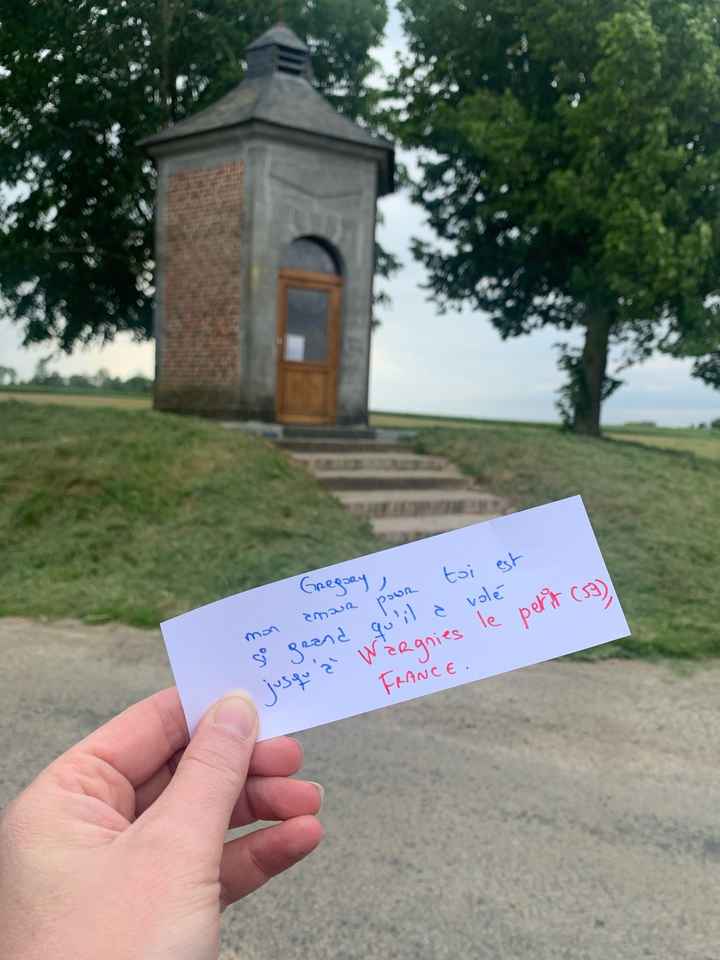 Gregory,
mon amour pour toi est
si grand qu'il a volé
jusqu'à Wargnies le petit (59),
FRANCE.